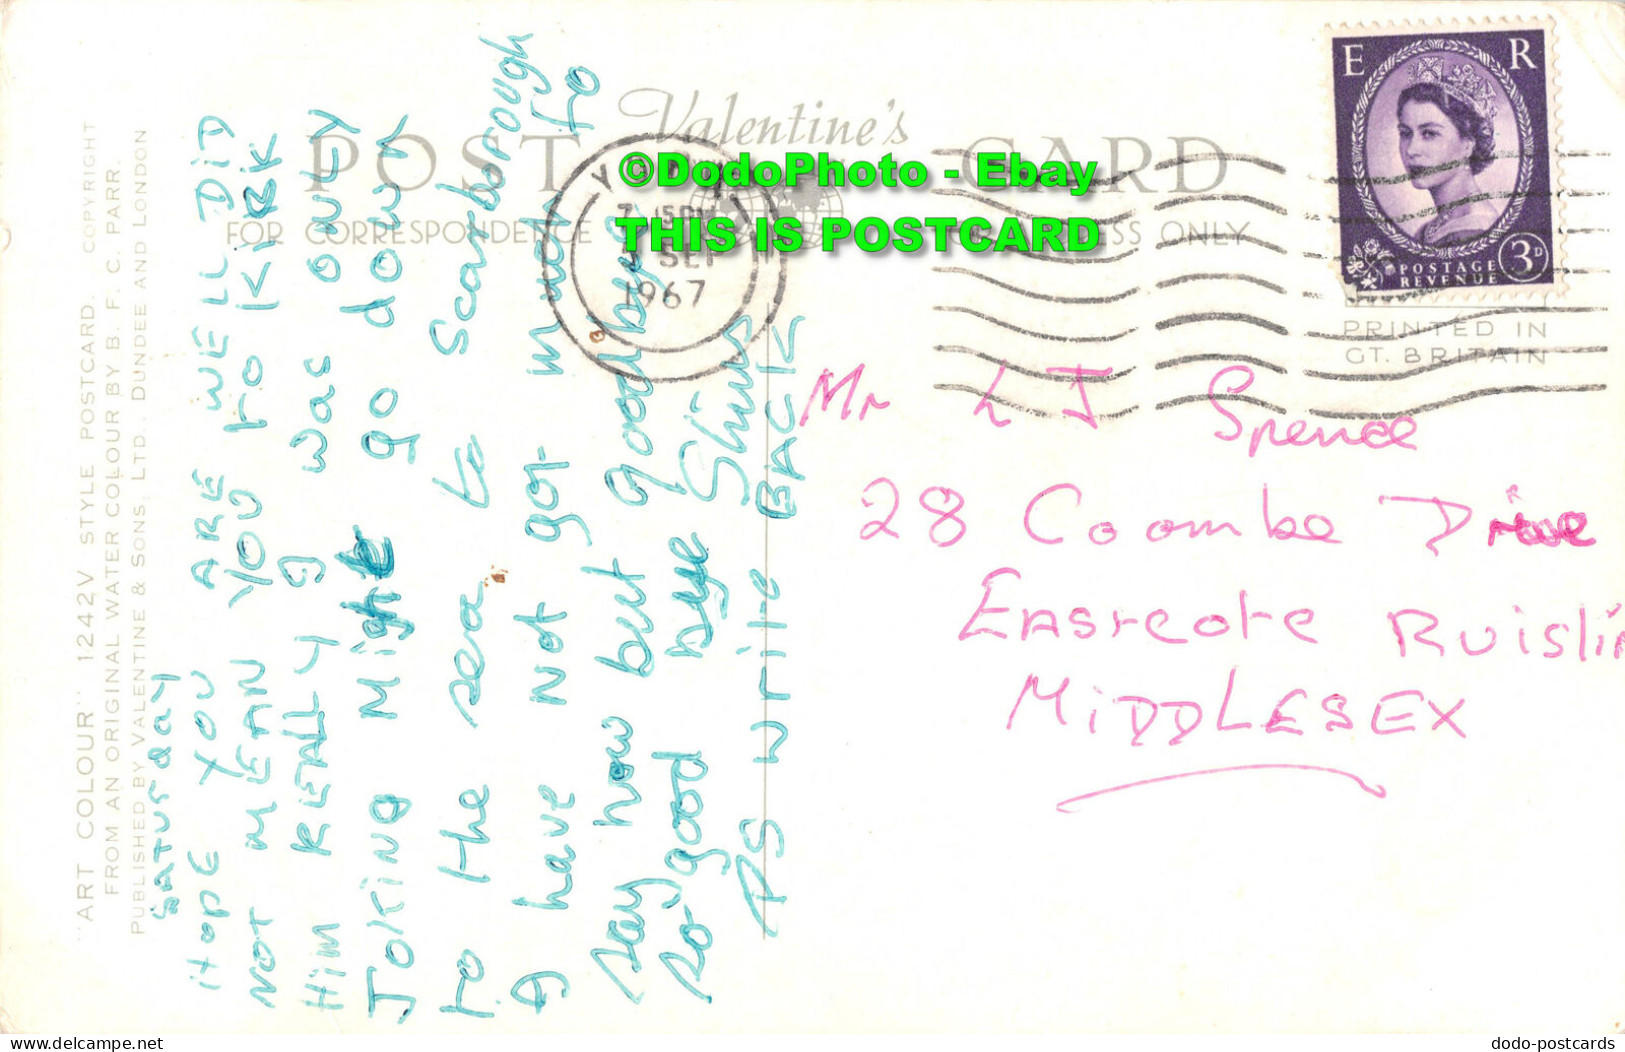 "ART COLOUR" 1242V STYLE POSTCARD. COPYRIGHT
FROM AN ORIGINAL WATER COLOUR BY B. F. C. PARR.
PUBLISHED BY VALENTINE & SONS, LTD., DUNDEE AND LONDON
Valentine's
POST CARD
FOR CORRESPONDENCE ONLY
©DodoPhoto - Ebay
THIS IS POSTCARD
1967
E R
POSTAGE
REVENUE
3D
PRINTED IN
GT. BRITAIN
Saturday
HOPE YOU ARE WELL DID
NOT MEAN YOU TO KIRK
HIM REALLY I was ONLY
JOKING Might go down
to the sea to Scarborough
I have not got much to
say now but good bye
so good bye
PS write BACK
Mr L J Spence
28 Coombe Drive
Eastcote Ruislip
MiDDLESEX
delcampe.net
dodo-postcards